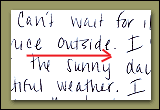 Can't wait for
outside. I
the sunny
weather. I